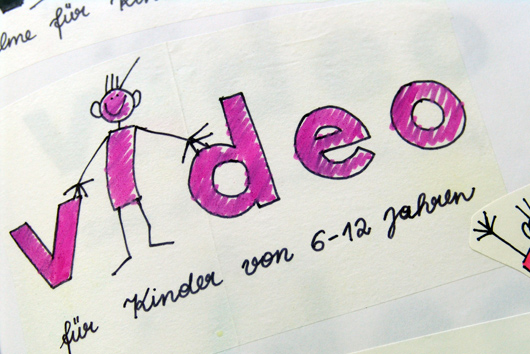 für Kin
video
für Kinder von 6-12 Jahren